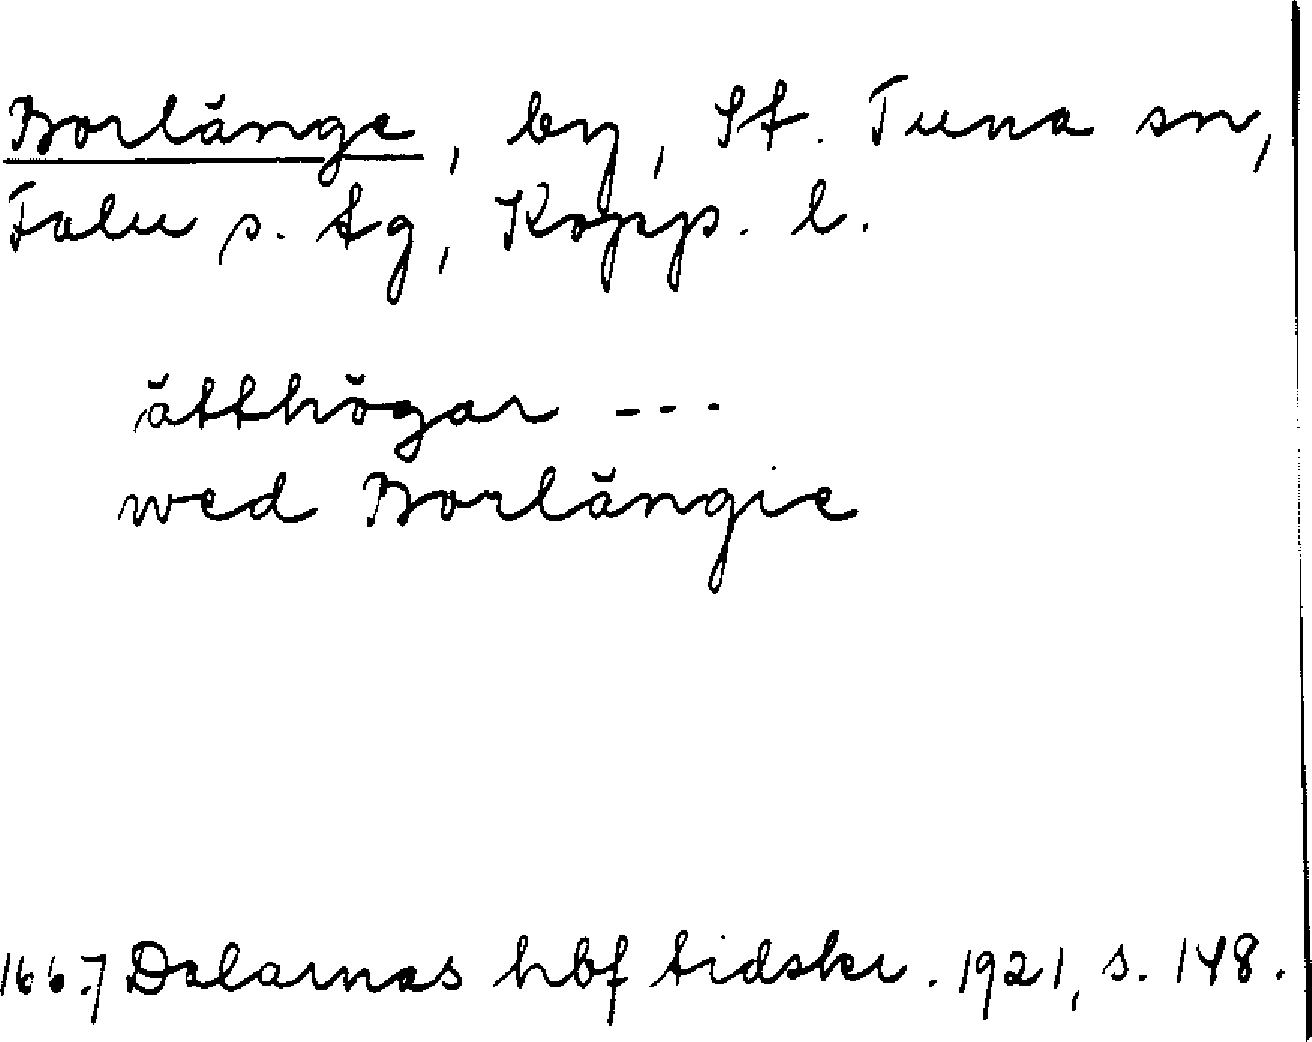 Borlänge, by, St. Tuna sn,
Falu s. tg, Kopp. l.
ätthögar ---
wed Borlängie
1667 Dalarnas hbf tidskr. 1921, s. 148.